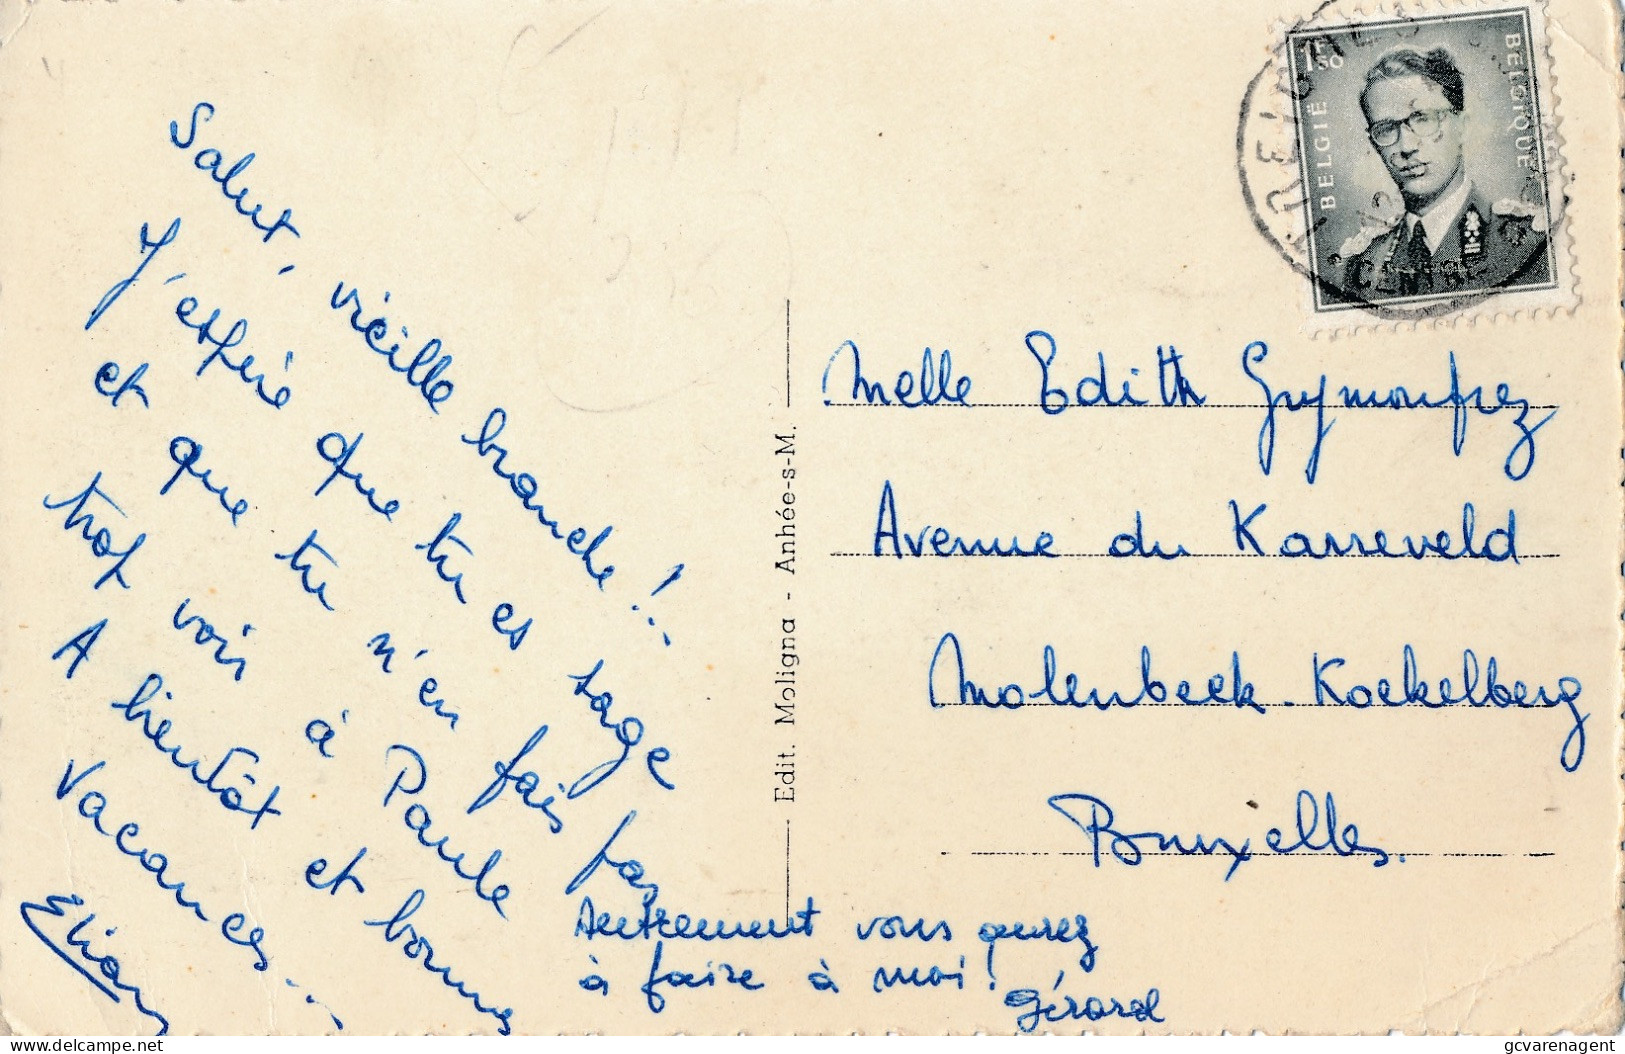 Salut, vieille branche !..
J'espère que tu es sage
et que tu n'en fais pas
trop voir à Paule
A bientôt et bonnes
Vacances...
Elian
Autrement vous aurez
à faire à moi !
Gérard
Edit. Moligna - Anhée-s-M.
Melle Edith Grymonprez
Avenue du Karreveld
Molenbeek-Koekelberg
Bruxelles.
1F50
BELGIË
BELGIQUE
CENTRE
gcvarenagent